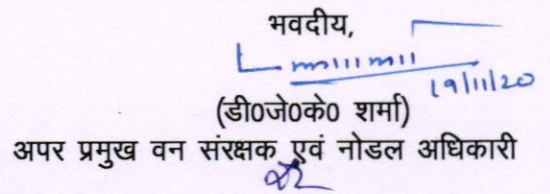 भवदीय,
19/11/20
(डी0जे0के0 शर्मा)
अपर प्रमुख वन संरक्षक एवं नोडल अधिकारी